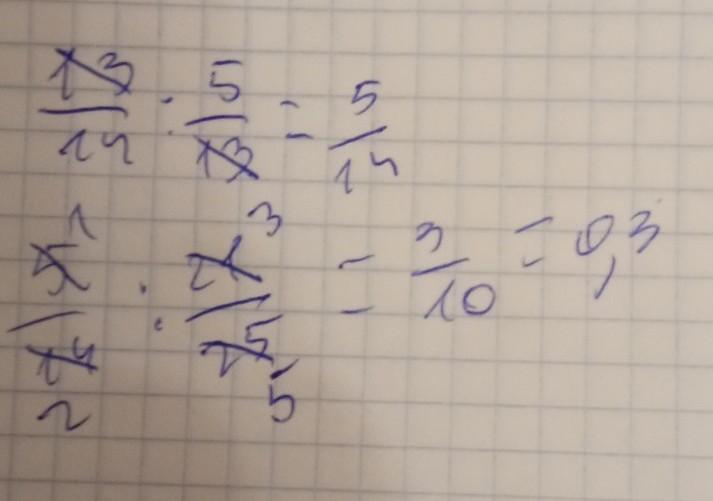 13/14 : 5/13 = 5/14
1/2 : 21 3/15 5 = 3/10 = 0,3